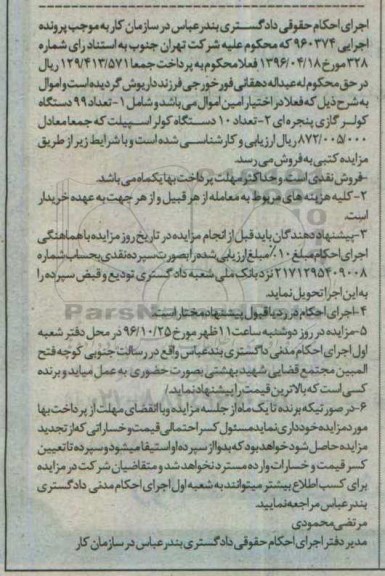 اجرای احکام حقوقی دادگستری بندرعباس در سازمان کار به موجب پرونده
اجرایی ۹۶۰۳۷۴ که محکوم علیه شرکت تهران جنوب به استناد رای شماره
۳۲۸ مورخ ۱۳۹۶/۰۴/۱۸ فعلا محکوم به پرداخت جمعا ۱۲۹/۴۱۳/۵۷۱ ریال
در حق محکوم له عبداله دهقانی فورخورجی فرزند داریوش گردیده است و اموال
به شرح ذیل که فعلا در اختیار امین اموال می باشد و شامل ۱- تعداد ۹۹ دستگاه
کولر گازی پنجره ای ۲- تعداد ۱۰ دستگاه کولر اسپیلت که جمعا معادل
۸۷۲/۰۰۵/۰۰۰ ریال ارزیابی و کارشناسی شده است و با شرایط زیر از طریق
مزایده کتبی به فروش می رسد.
-فروش نقدی است و حداکثر مهلت پرداخت بها یکماه می باشد.
۲-کلیه هزینه های مربوط به معامله از هر قبیل و از هر جهت به عهده خریدار
است.
۳-پیشنهاد دهندگان باید قبل از انجام مزایده در تاریخ روز مزایده با هماهنگی
اجرای احکام مبلغ ۱۰٪ مبلغ ارزیابی شده را بصورت سپرده نقدی بحساب شماره
۲۱۷۱۲۹۵۴۰۹۰۰۸ نزد بانک ملی شعبه دادگستری تودیع و قبض سپرده را
به این اجرا تحویل نماید.
۴-اجرای احکام در رد یا قبول پیشنهاد مختار است.
۵-مزایده در روز دوشنبه ساعت ۱۱ ظهر مورخ ۹۶/۱۰/۲۵ در محل دفتر شعبه
اول اجرای احکام مدنی دادگستری بندرعباس واقع در رسالت جنوبی کوچه فتح
المبین مجتمع قضایی شهید بهشتی بصورت حضوری به عمل میاید و برنده
کسی است که بالاترین قیمت را پیشنهاد نماید./
۶-در صورتیکه برنده تا یک ماه از جلسه مزایده و با انقضای مهلت از پرداخت بها
مورد مزایده خودداری نماید مسئول کسر احتمالی قیمت و خساراتی که از تجدید
مزایده حاصل شود خواهد بود که بدوا از سپرده او استیفا میشود و سپرده تا تعیین
کسر قیمت و خسارات وارده مسترد نخواهد شد و متقاضیان شرکت در مزایده
برای کسب اطلاع بیشتر میتوانند به شعبه اول اجرای احکام مدنی دادگستری
بندرعباس مراجعه نمایید.
مرتضی محمودی
مدیر دفتر اجرای احکام حقوقی دادگستری بندرعباس در سازمان کار